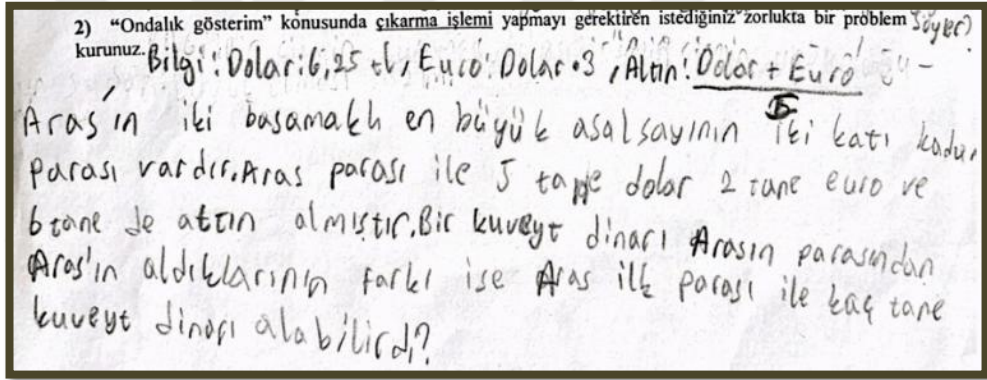 2) “Ondalık gösterim” konusunda çıkarma işlemi yapmayı gerektiren istediğiniz zorlukta bir problem
kurunuz. Bilgi: Dolar: 6,25 tl, Euro: Dolar • 3, Altın: Dolar + Euro
5
Aras'ın iki basamaklı en büyük asal sayının iki katı kadar
parası vardır. Aras parası ile 5 tane dolar 2 tane euro ve
6 tane de altın almıştır. Bir kuveyt dinarı Arasın parasından
Aras'ın aldıklarının farkı ise Aras ilk parası ile kaç tane
kuveyt dinarı alabilirdi?